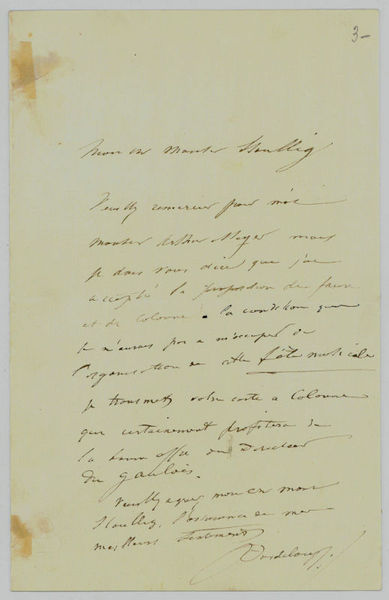 3-
Mon cher Monsieur Stoullig
Veuillez remercier pour moi
Monsieur Arthur Meyer mais
je dois vous dire que j'ai
accepté la proposition de faure
et de Colonne à la condition que
je n'aurais pas à m'occuper de
l'organisation de cette fête musicale
je transmets votre carte à Colonne
qui certainement profitera de
la bonne offre du Directeur
du Gaulois.
Veuillez agréer mon cher Mons
Stoullig, l'assurance de mes
meilleurs sentiments
Pasdeloup